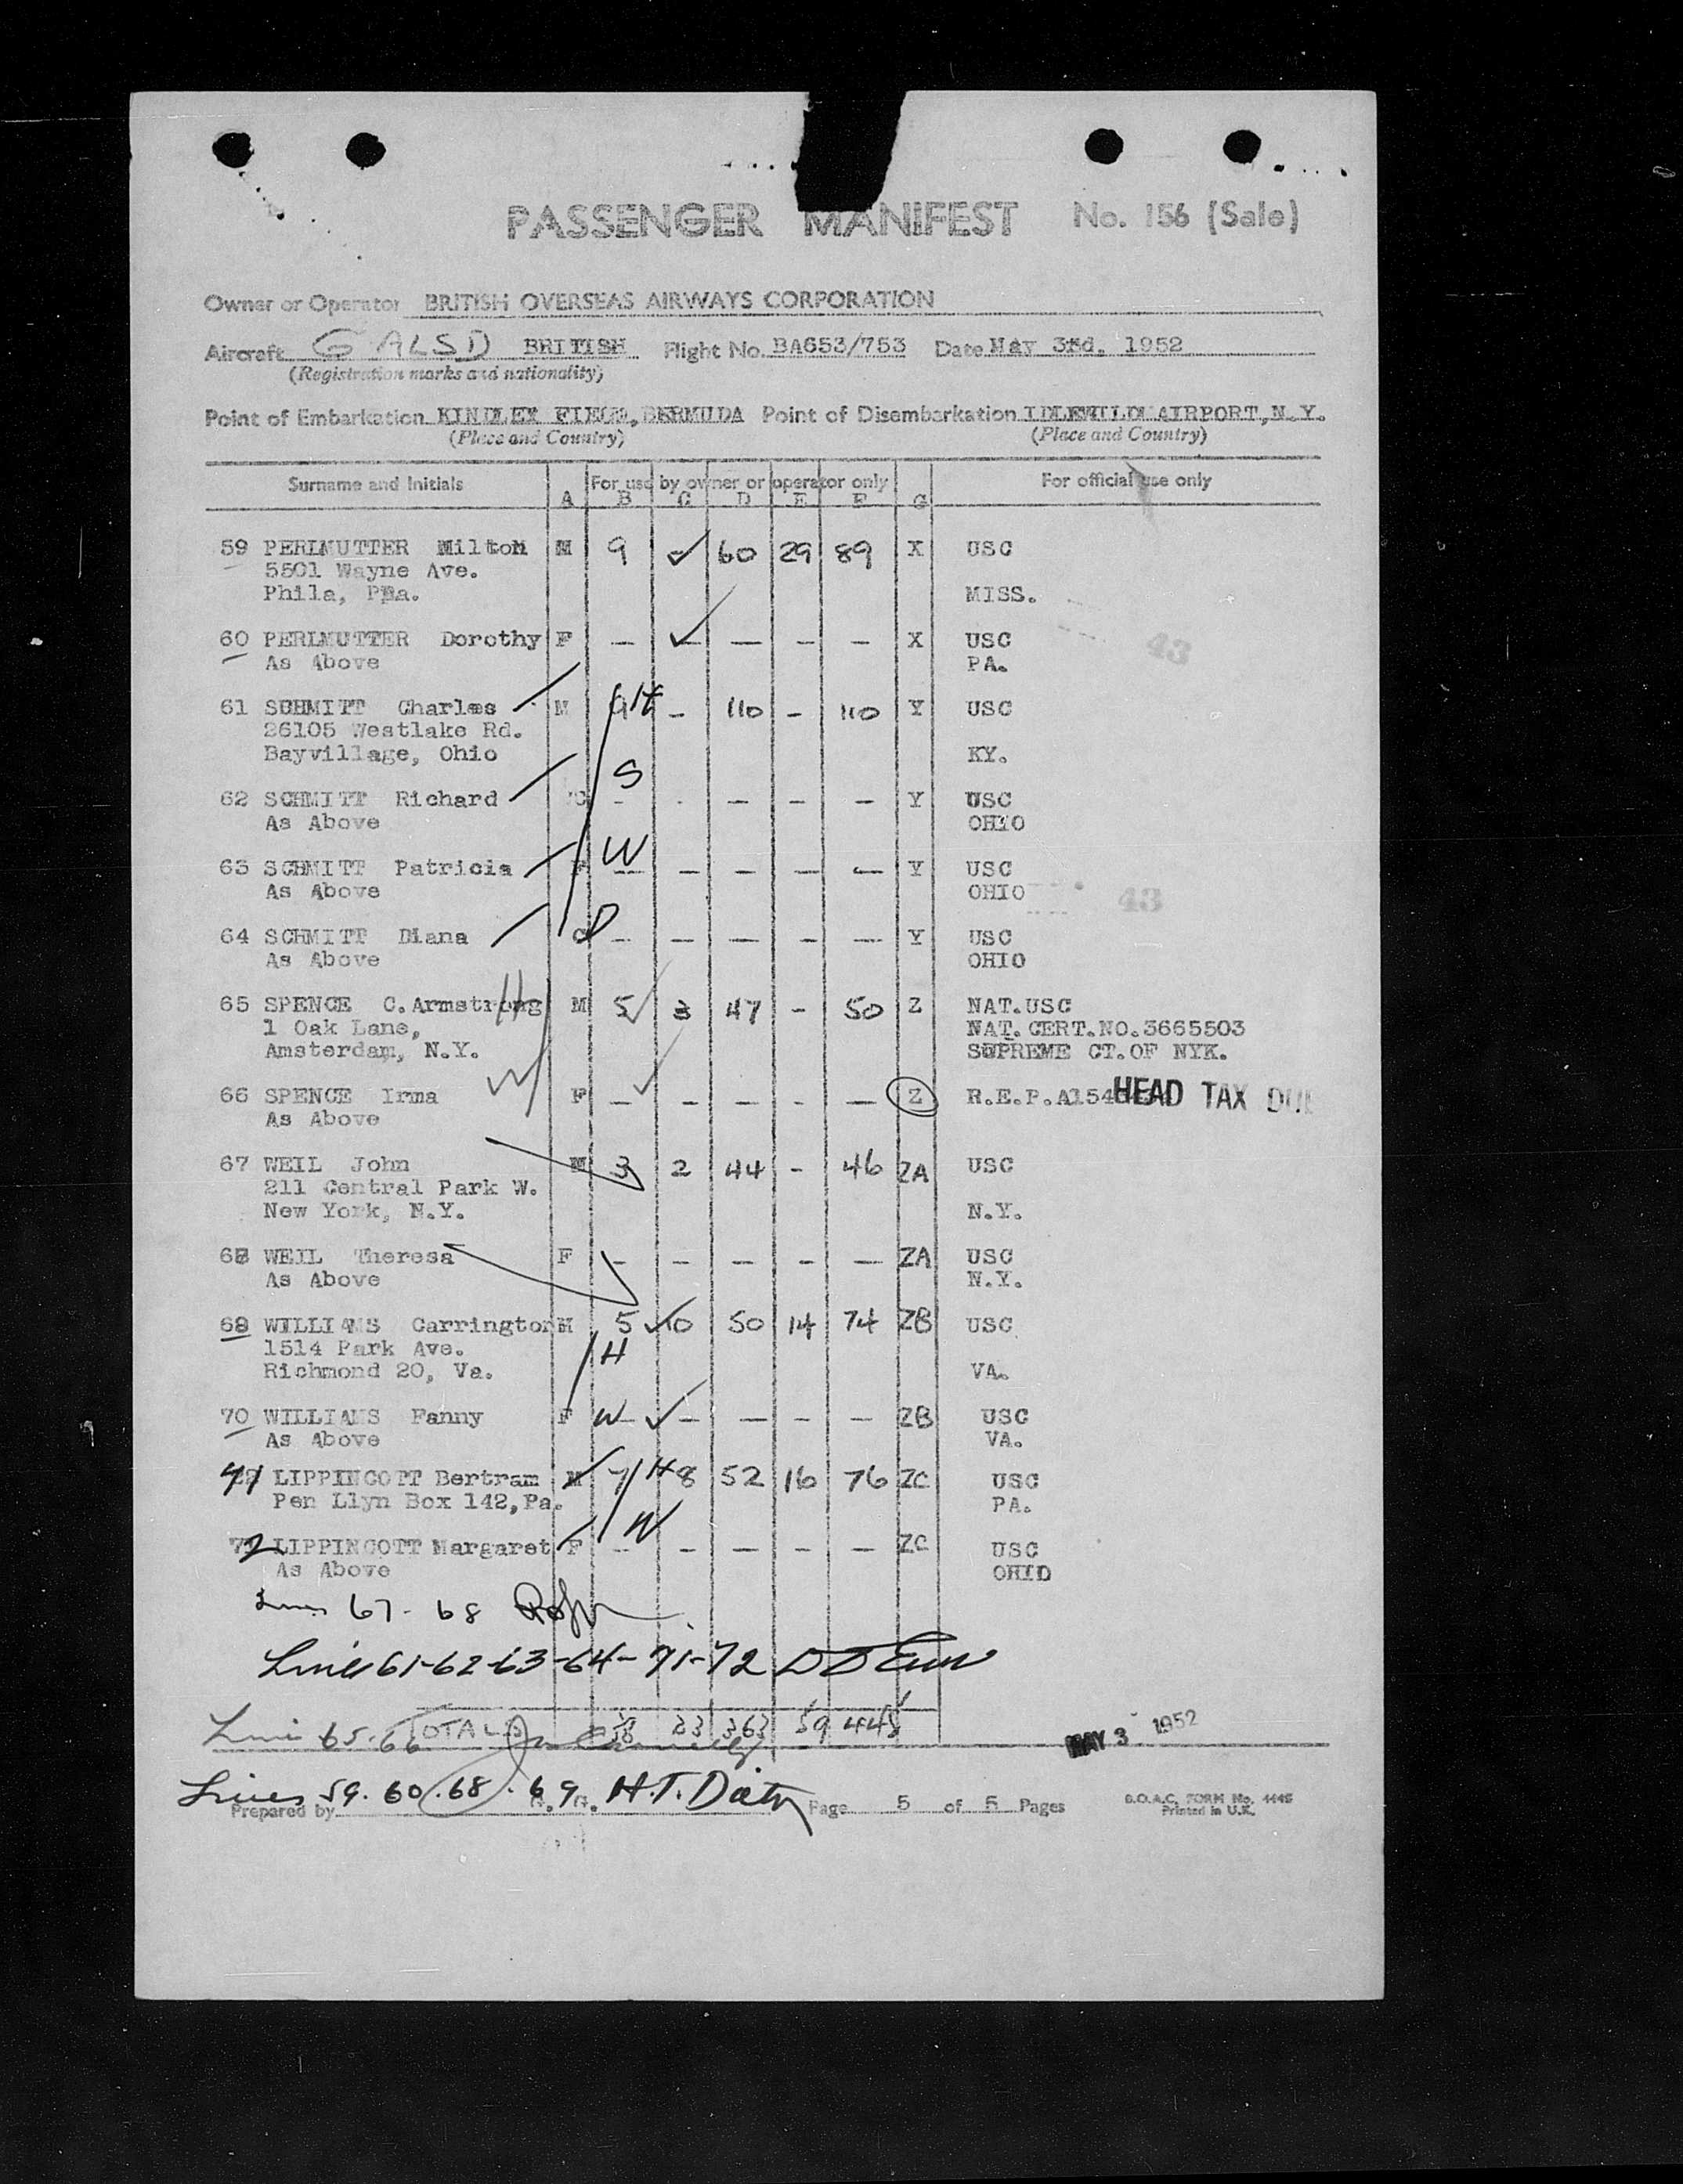 PASSENGER MANIFEST No. 156 (Sale)
Owner or Operator BRITISH OVERSEAS AIRWAYS CORPORATION
Aircraft G ALSD BRITISH Flight No. BA653/753 Date May 3rd. 1952
(Registration marks and nationality)
Point of Embarkation KINDLEY FIELD, BERMUDA Point of Disembarkation IDLEWILD AIRPORT, N.Y.
(Place and Country) (Place and Country)
Surname and Initials For use by owner or operator only For official use only
A B C D E F G
59 PERLMUTTER Milton M 9 ✓ 60 29 89 X USC
5501 Wayne Ave.
Phila, Pa. MISS.
60 PERLMUTTER Dorothy F — ✓ — — — X USC
As Above PA.
43
61 SCHMITT Charles M 9 H - 110 - 110 Y USC
26105 Westlake Rd.
Bayvillage, Ohio KY.
S
62 SCHMITT Richard C - - — — — Y USC
As Above OHIO
W
63 SCHMITT Patricia F — — — — — Y USC
As Above OHIO
43
D
64 SCHMITT Diana C — — — — — Y USC
As Above OHIO
H
65 SPENCE C.Armstrong M 5 ✓ 3 47 - 50 Z NAT.USC
1 Oak Lane, NAT.CERT.NO.3665503
Amsterdam, N.Y. SUPREME CT.OF NYK.
W ✓
66 SPENCE Irma F — — — - — Z R.E.P.A154 HEAD TAX DUE
As Above
67 WEIL John M 3 2 44 - 46 ZA USC
211 Central Park W.
New York, N.Y. N.Y.
68 WEIL Theresa F — — — — — ZA USC
As Above N.Y.
69 WILLIAMS Carrington M 5 ✓ 10 50 14 74 ZB USC
1514 Park Ave. H
Richmond 20, Va. VA.
70 WILLIAMS Fanny F W — ✓ — — — — ZB USC
As Above VA.
71 LIPPINCOTT Bertram M 7 H 8 52 16 76 ZC USC
Pen Llyn Box 142, Pa. PA.
W
72 LIPPINCOTT Margaret F — — — — — ZC USC
As Above OHIO
Lines 67-68
Line 61-62-63-64-71-72
Line 65-66 TOTAL 38 23 363 59 445 MAY 3 1952
Lines 59. 60. 68. 69. H.T.
Prepared by Page 5 of 5 Pages B.O.A.C. FORM No. 4445
Printed in U.K.